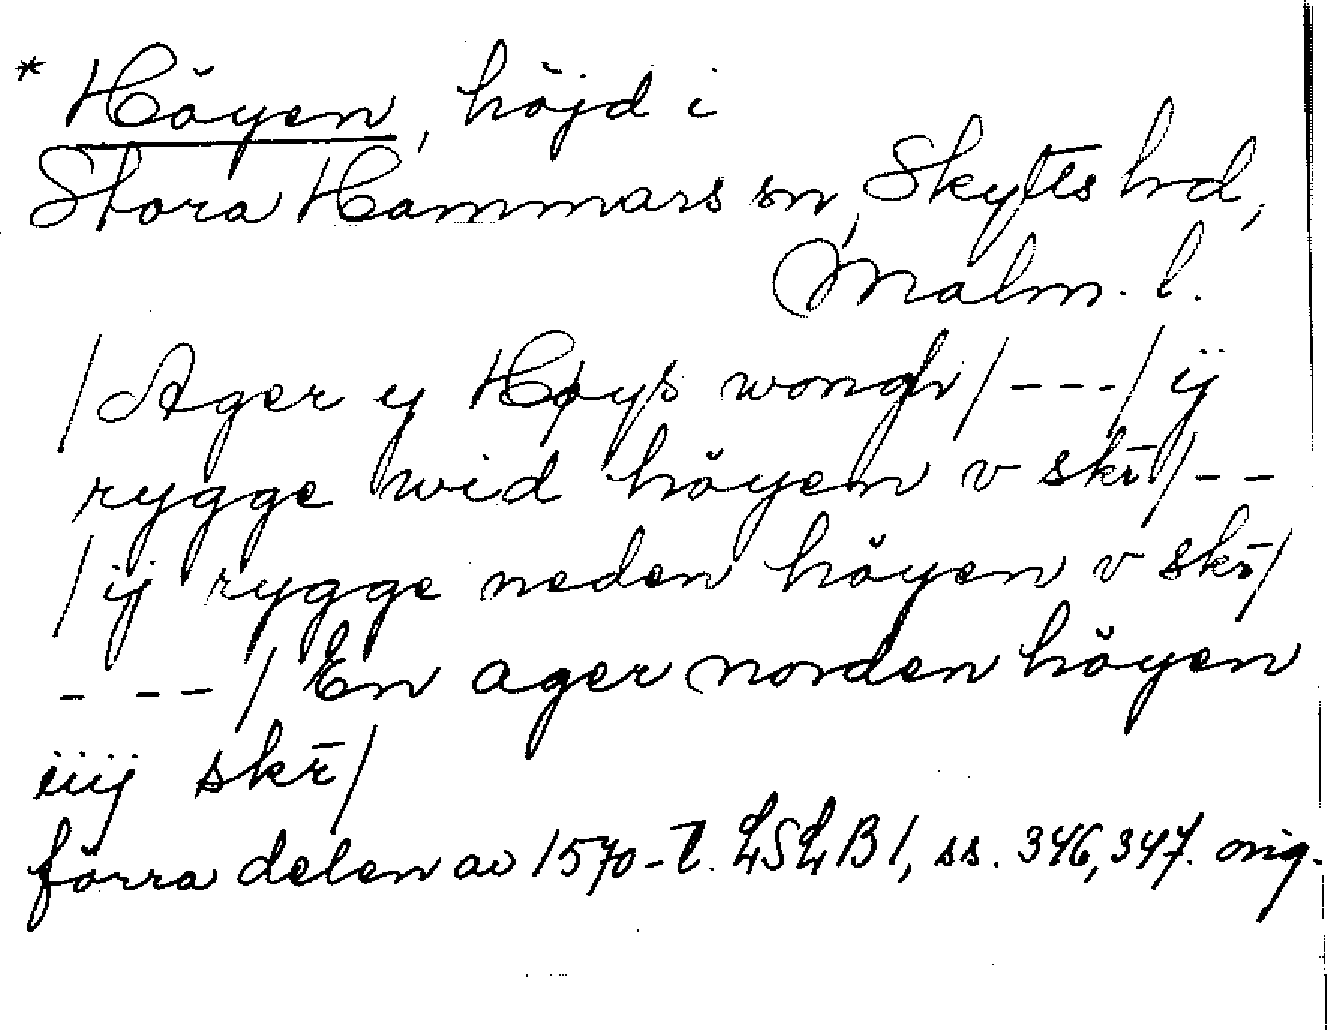 * Höyen, höjd i
Stora Hammars sn, Skytts hd,
Malm. l.
/Ager y Høys wongh/---/ij
rygge wid höyen v skr̄/--
/ij rygge neden höyen v skr̄/
---/En ager norden höyen
iiij skr̄/
förra delen av 1570-t. LSLB 1, ss. 346, 347. orig.